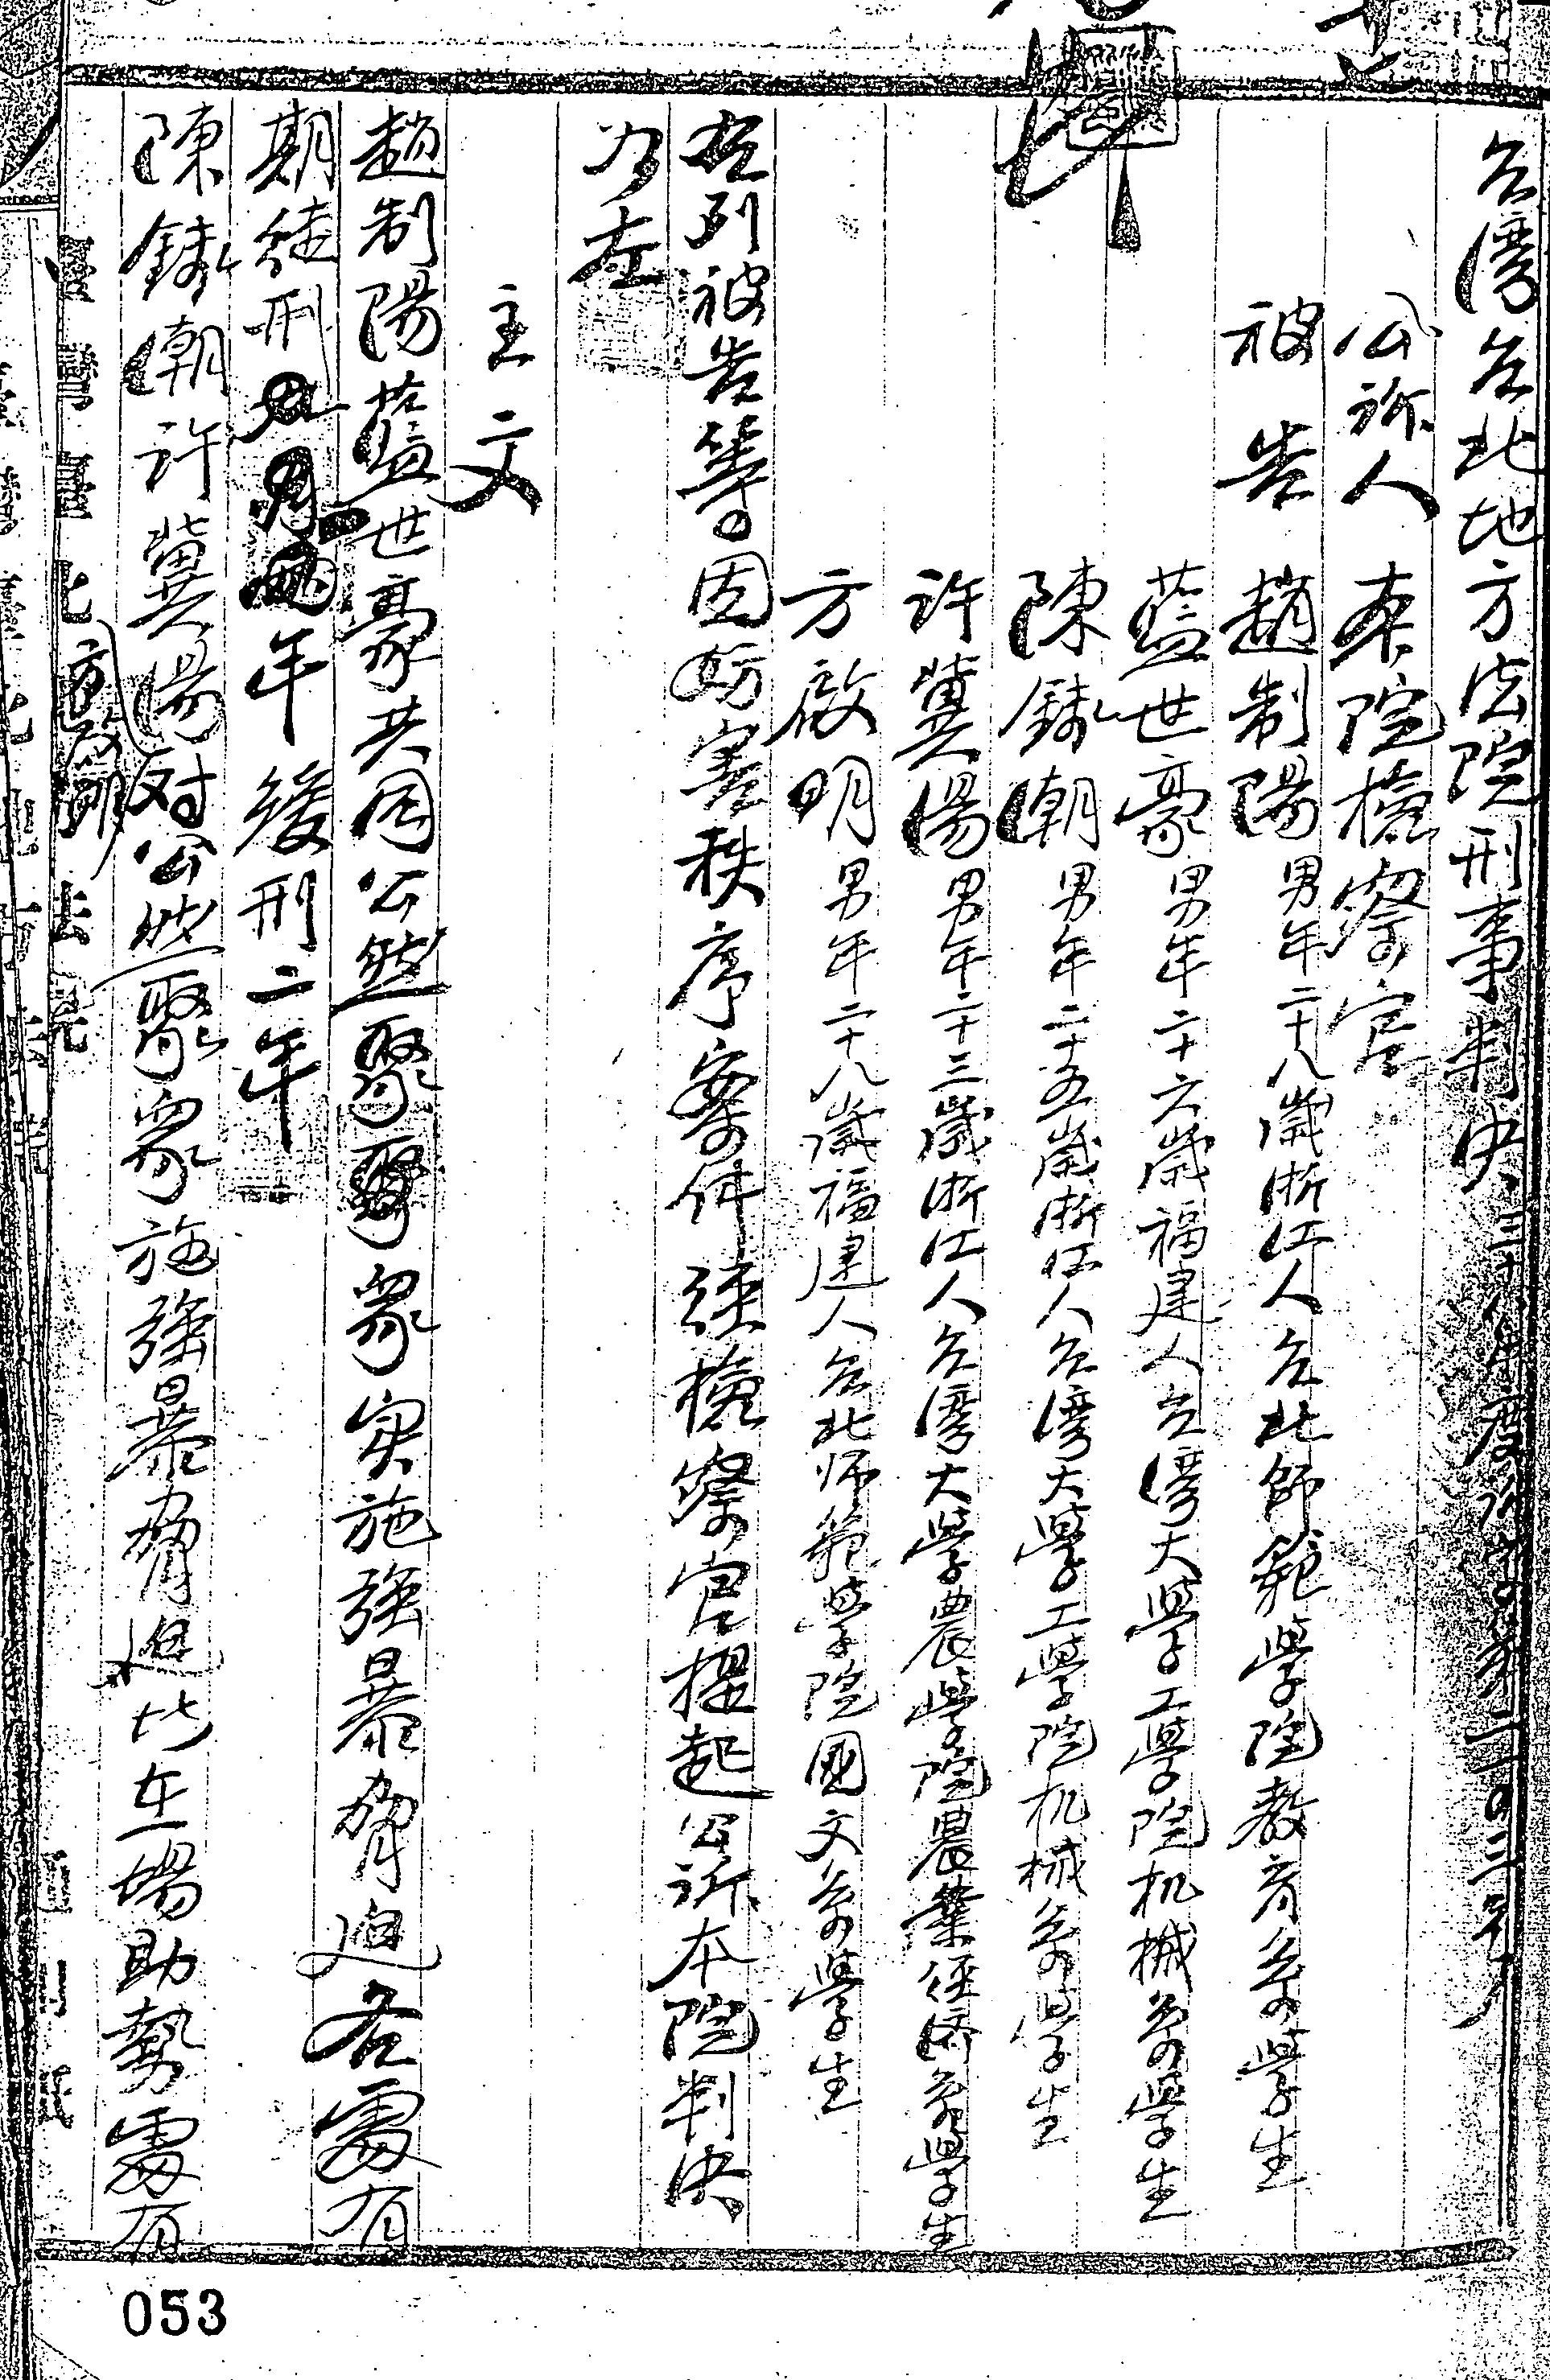 台湾台北地方法院刑事判决 三十八年度訴字第二〇三号
公訴人 本院檢察官
被告 趙制陽 男年二十八歲浙江人台北師範學院教育系學生
藍世豪 男年二十六歲福建人台湾大學工學院机械系學生
陳錢潮 男年二十五歲浙江人台湾大學工學院机械系學生
許冀湯 男年二十三歲浙江人台湾大學農學院農業經济系學生
方啟明 男年二十八歲福建人台北师範學院國文系學生
右列被告等因妨害秩序案件經檢察官提起公訴本院判决
为左
主文
趙制陽藍世豪共同公然聚衆实施強暴脅迫各處有
期徒刑 年緩刑二年
陳錢潮許冀湯方啟明对公然聚衆施強暴脅迫比在場助勢處有
053